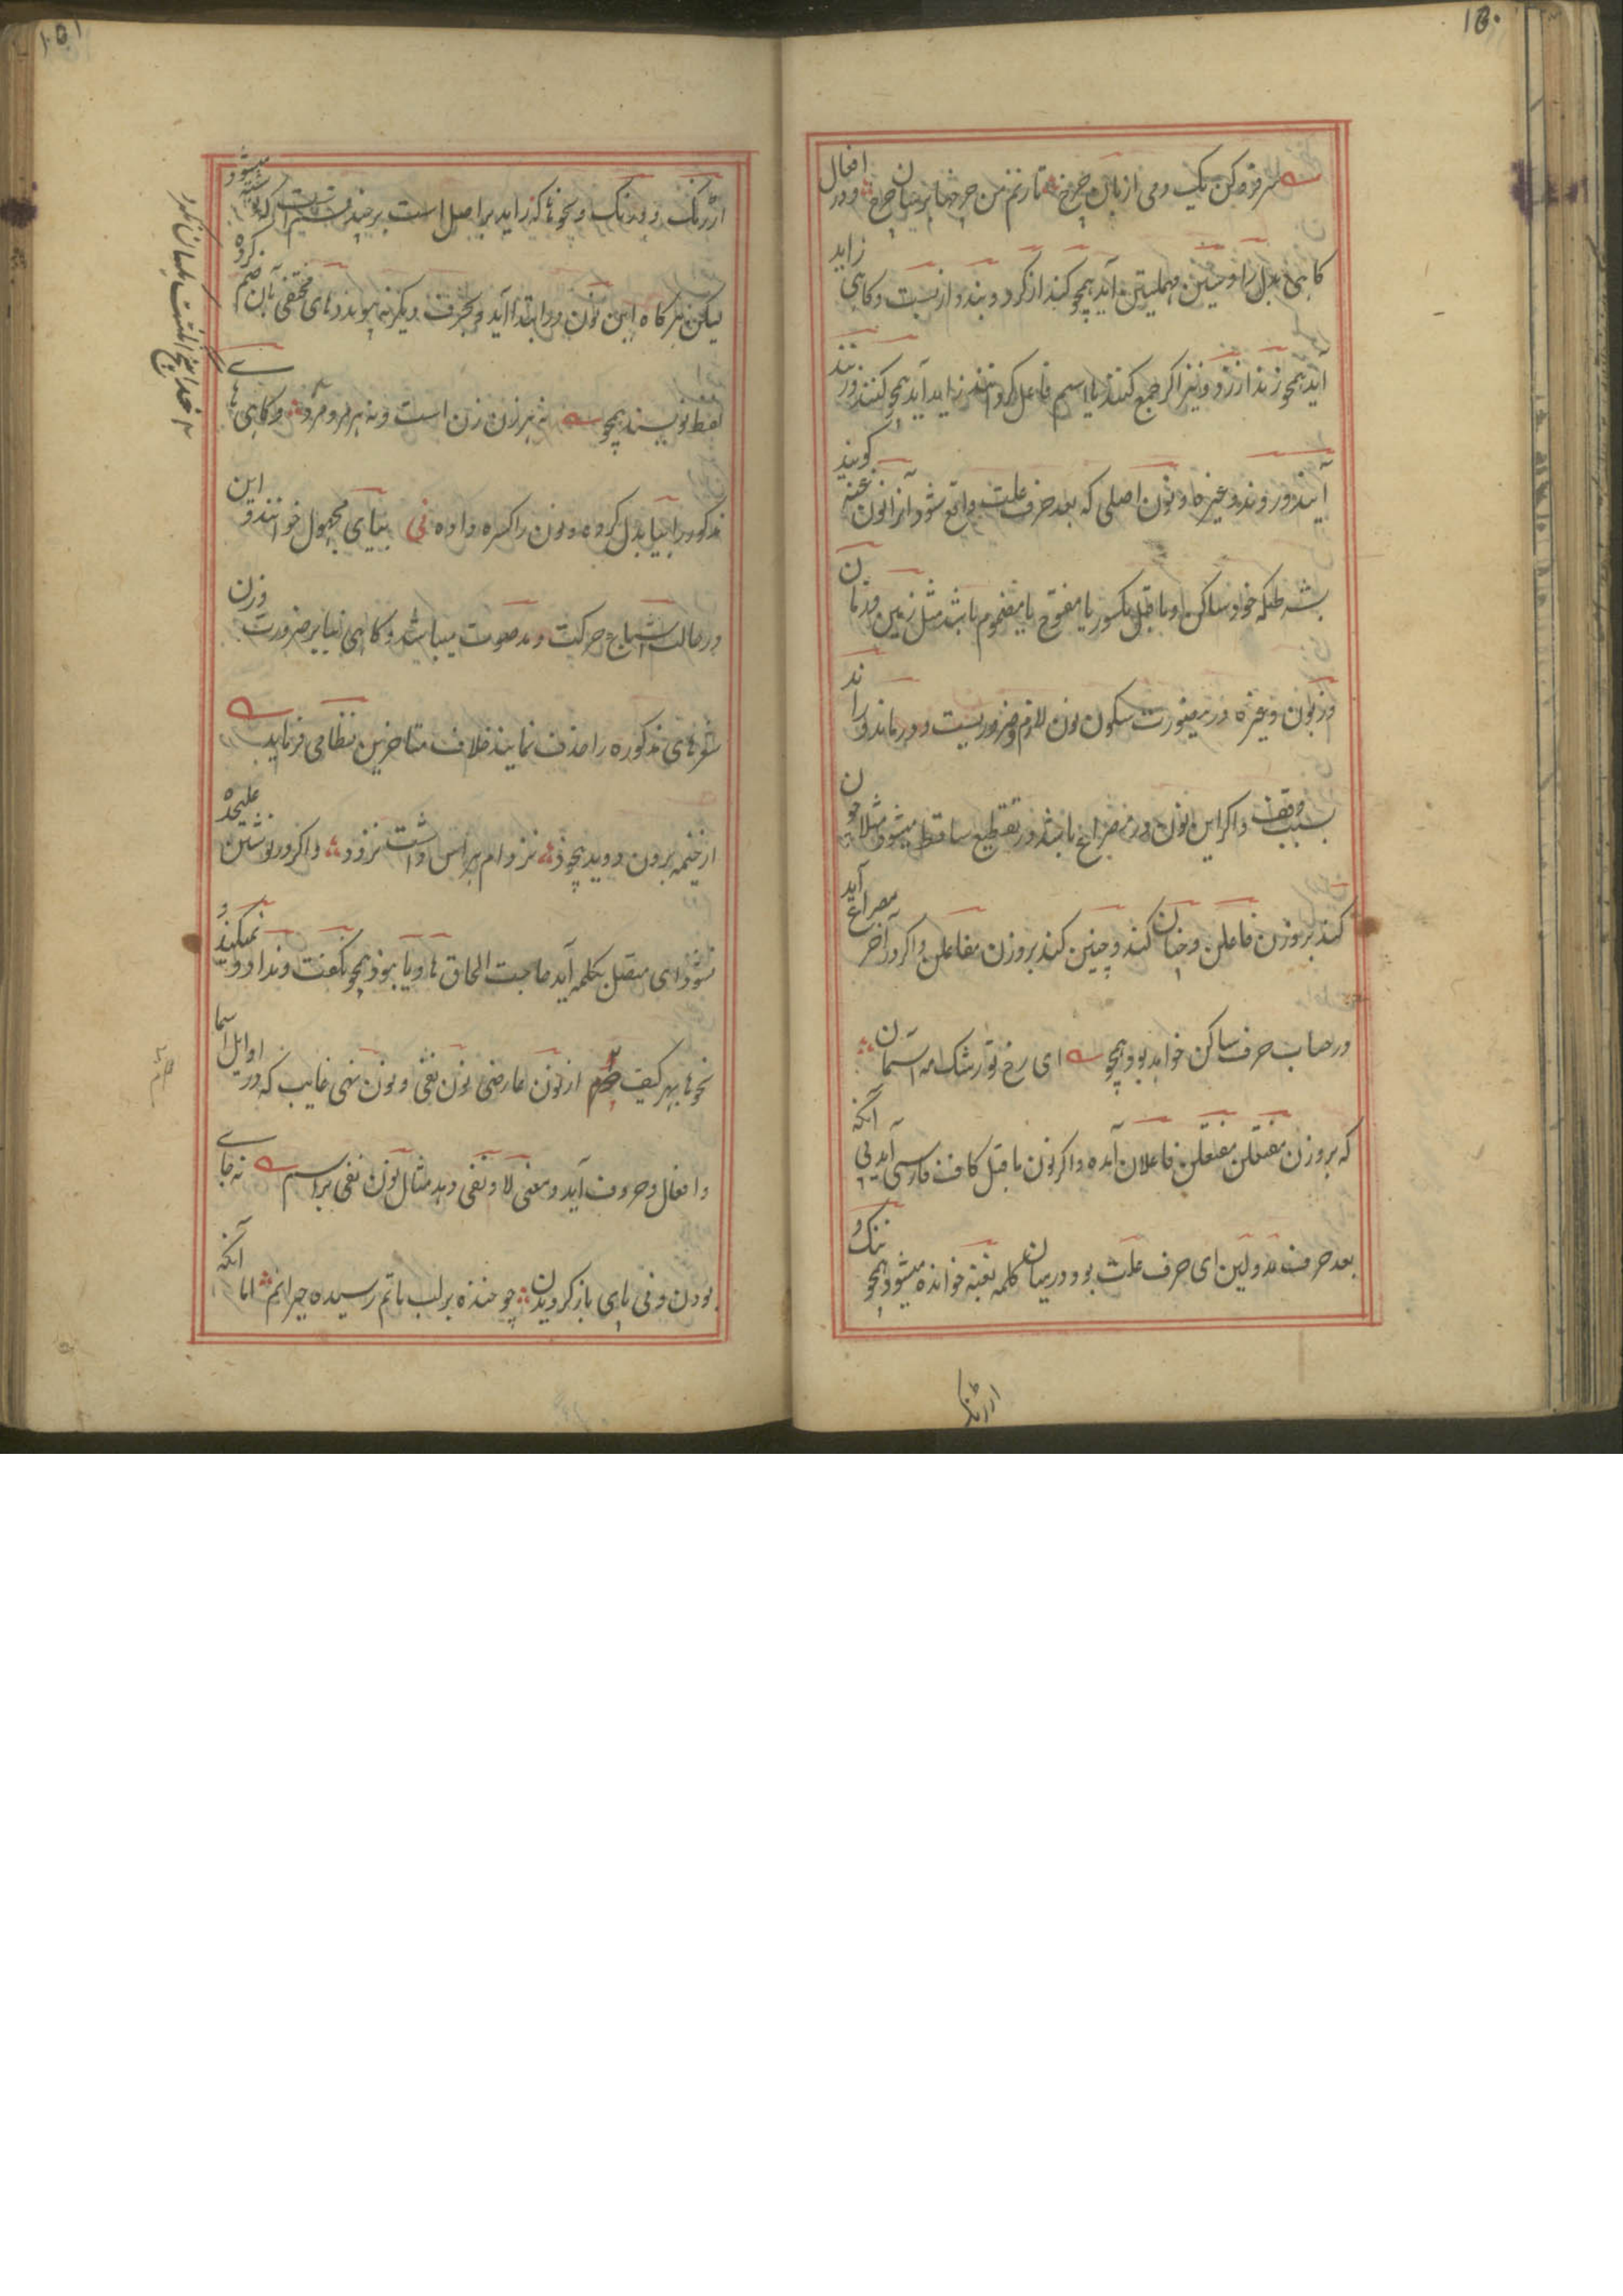 ۱۵۰
سر فرو کن یک دمی از بام چرخ تا زنم من چرخها بر سان چرخ و در افعال
کاهی بدل را و سین مهملتین آید همچو کند از کرد و بندد از بست و کاهی زاید
آید همچو زند از زد و نیز اگر جمع کنند یا اسم فاعل کردانند زاید آید همچو کنند و زنند
آیند و روند و غیره و نون اصلی که بعد حرف علت واقع شود آنرا نون غنه کویند
بشرطیکه خود ساکن و ما قبل مکسور یا مفتوح یا مضموم باشد مثل زمین و زمان
و زبون و غیره درینصورت سکون نون لازم و ضروریست و در ماند و راند
بسبب وقف و اکر این نون در مصراع باشد در تقطیع ساقط میشود مثلا چون
کند بر وزن فاعلن و چنان کند و چنین کند بر وزن مفاعلن و اکر در آخر مصراع آید
در حساب حرف ساکن خواهد بود همچو ای رخ تو رشک مه آسمان
که بر وزن مفتعلن مفتعلن فاعلان آمده و اکر نون ما قبل کاف فارسی آید بی آنکه
بعد حرف مد و لین ای حرف علت بود در میان کلمه بغنه خوانده میشود همچو ننک و
ارژنک
۱۵۱
ارژنک و درنک و نحوها که زاید بر اصل است بر چند قسم است نوشته میشود
لیکن هر کاه این نون در ابتدا آید و بحرف دیکر نه پیوندد های مختفی بآن ضم کرده
لفظ نویسند همچو نه هر زن زن است و نه هر مرد مرد و کاهی های
مذکور را بیا بدل کرده و نون را کسره داده نی بیای مجهول خوانند و این
در حالت اشباع حرکت و مد صوت میباشد و کاهی بنا بر ضرورت وزن
شعر های مذکوره را حذف نمایند خلاف متاخرین نظامی فرماید
از خیمه برون دوید همچو دد نز دام هراس داشت نز دد و اکر در نوشتن علیحده
نشود ای متصل بکلمه آید حاجت الحاق ها و یا نبود همچو نکفت و ندارد و نمیکند و
نحوها بهر کیف از نون عارضی نون نفی و نون نهی غایب که در اوایل اسما
و افعال و حروف آید و معنی لا و نفی دهد مثال نون نفی بر اسم نه جای
بودن و نی پای باز کردیدن چو خنده بر لب ماتم رسیده حیرانم اما آنکه